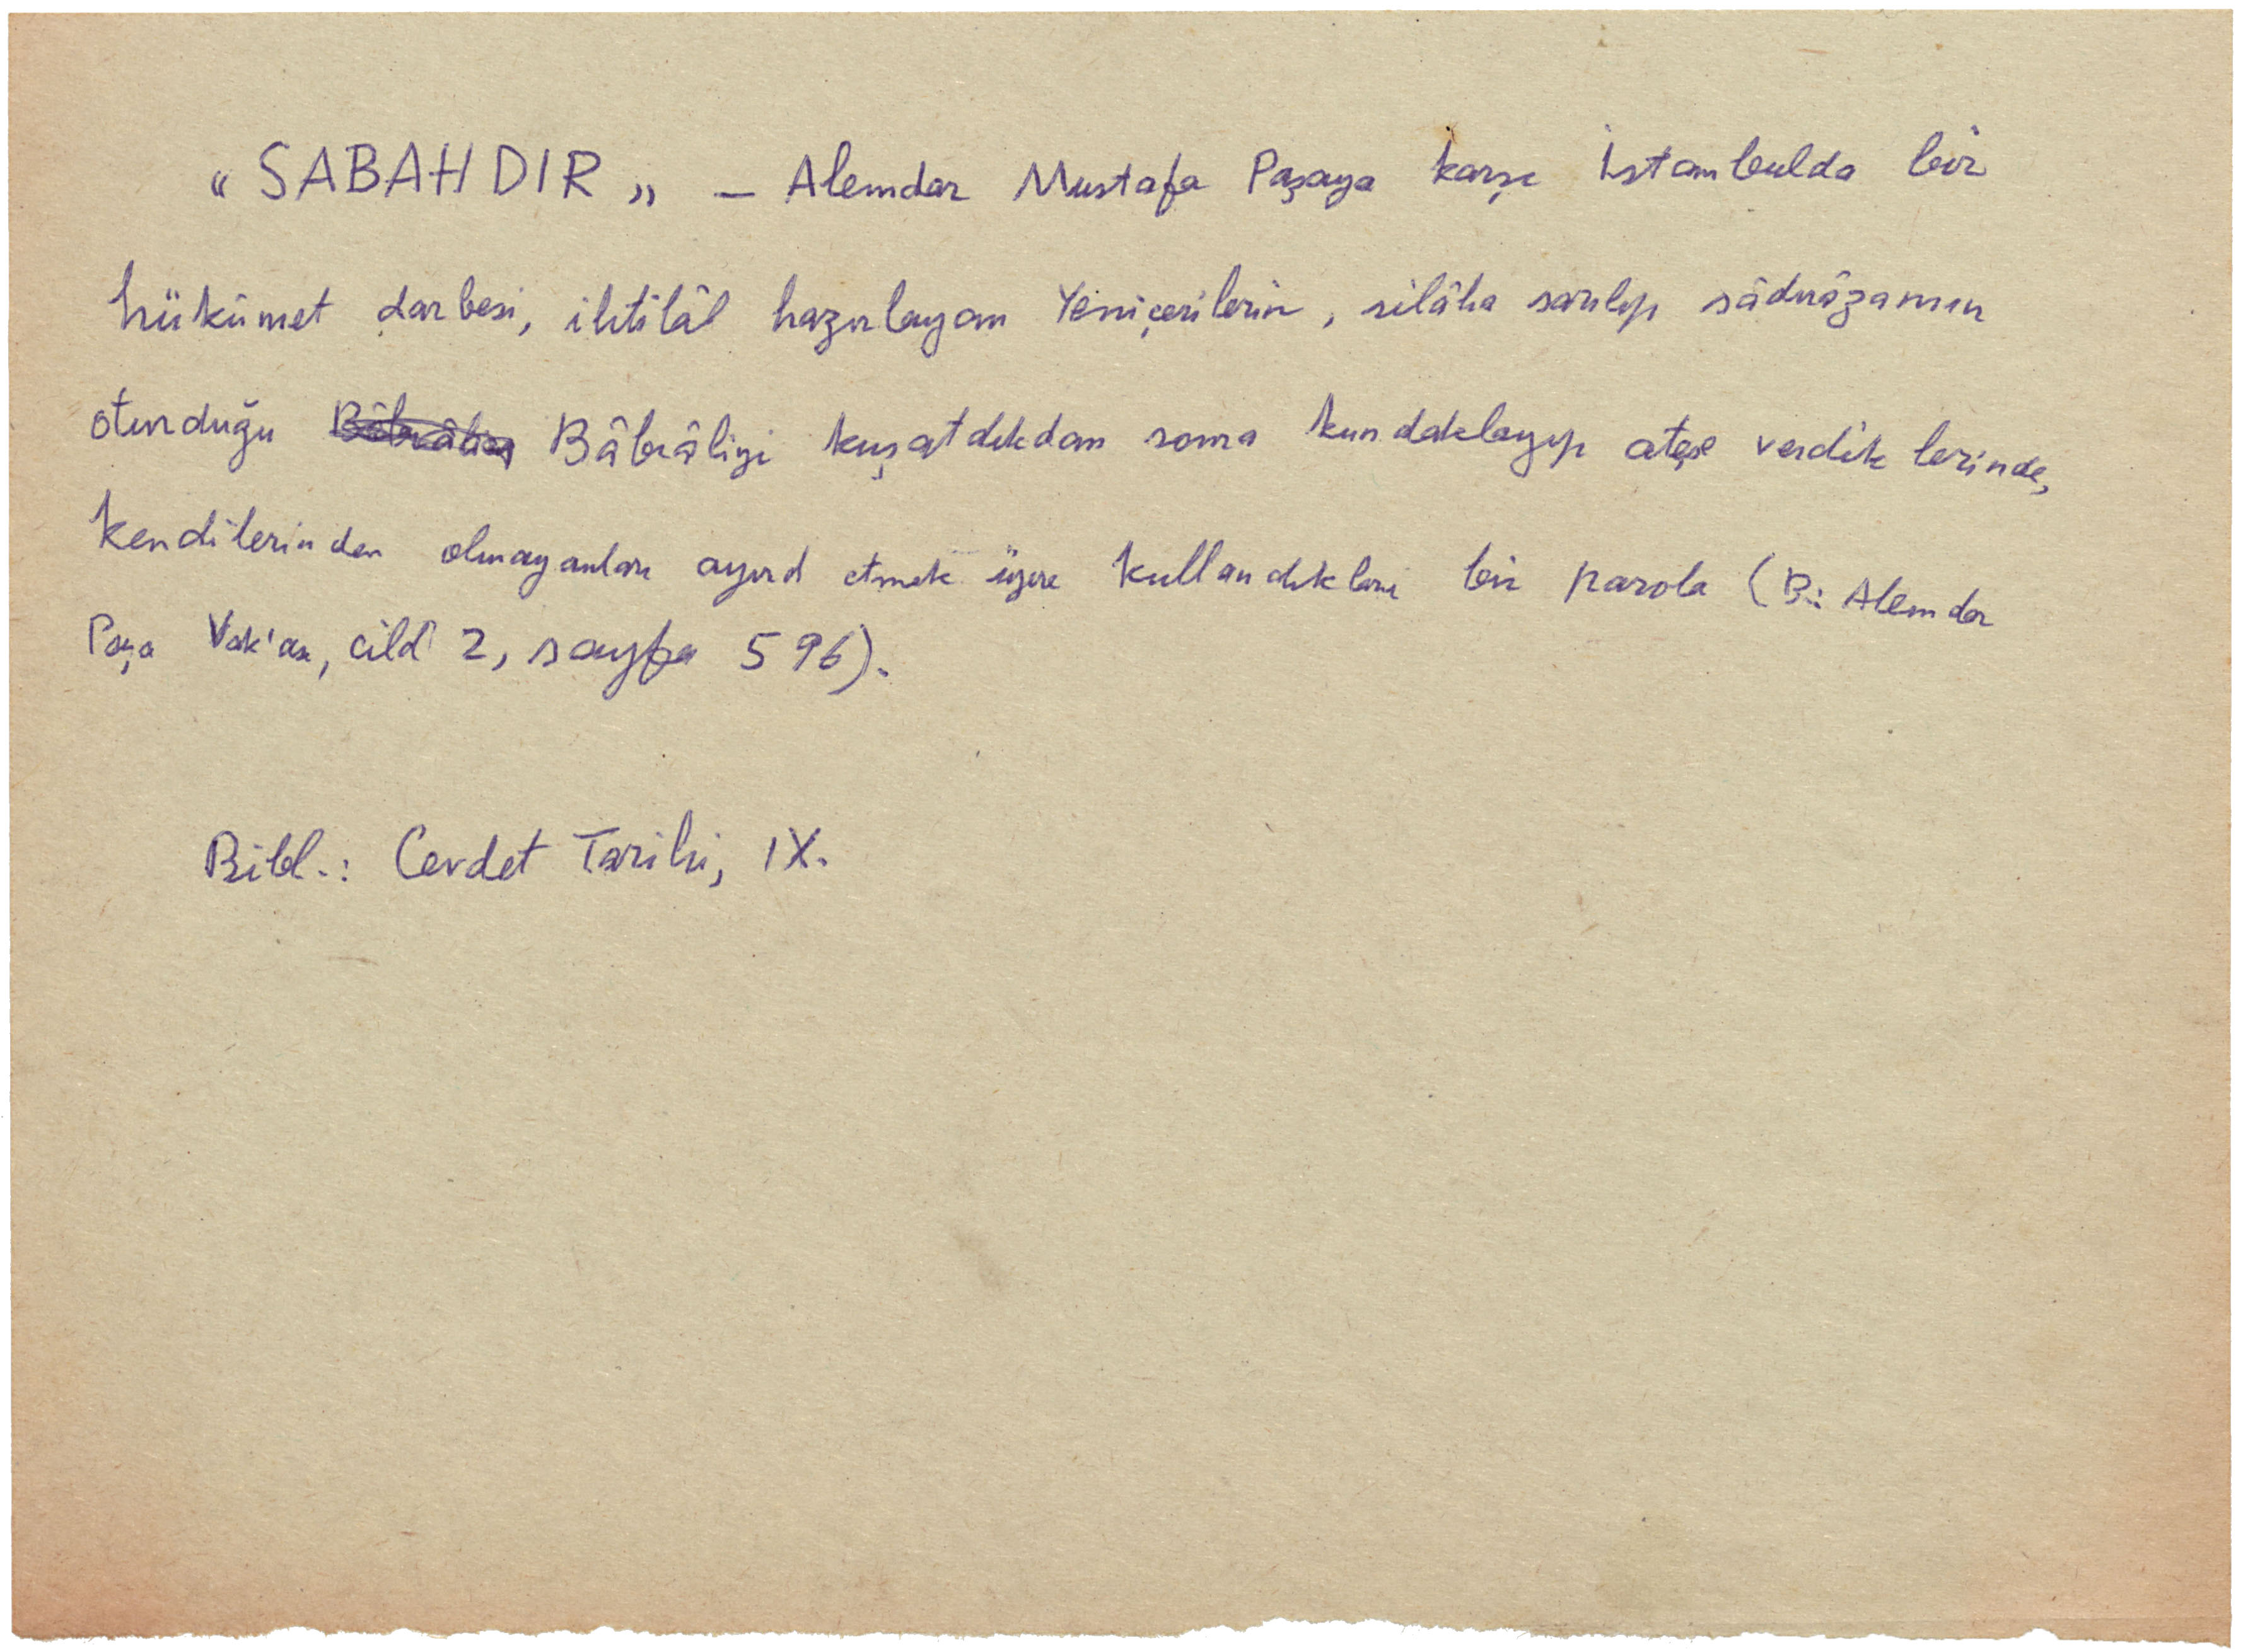 “SABAHDIR„ — Alemdar Mustafa Paşaya karşı İstanbulda bir
hükûmet darbesi, ihtilâl hazırlayan Yeniçerilerin, silâha sarılıp sâdırâzamın
oturduğu Bâbıâliyi kuşatdıkdan sonra kundaklayıp ateşe verdiklerinde,
kendilerinden olmayanları ayırd etmek üzere kullandıkları bir parola (B.: Alemdar
Paşa Vak'ası, cild 2, sayfa 596).
Bibl.: Cevdet Tarihi, IX.